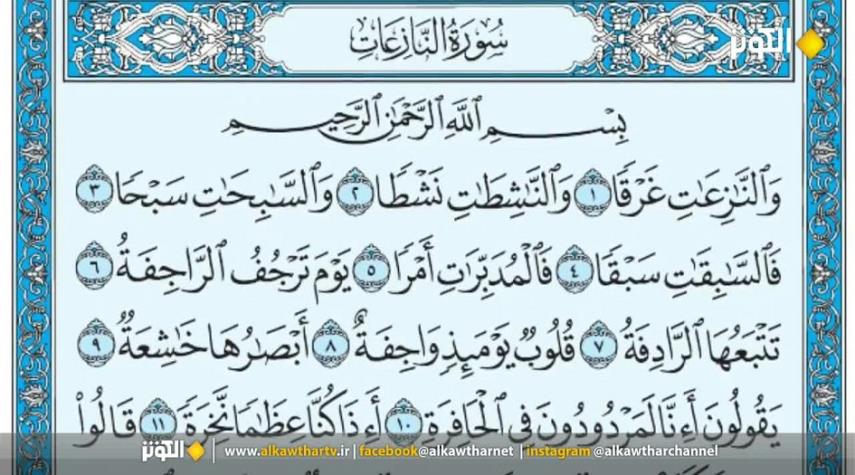 سُورَةُ النَّازِعَاتِ
الكوثر
بِسْمِ ٱللَّهِ ٱلرَّحْمَٰنِ ٱلرَّحِيمِ
وَٱلنَّٰزِعَٰتِ غَرْقًا ١ وَٱلنَّٰشِطَٰتِ نَشْطًا ٢ وَٱلسَّٰبِحَٰتِ سَبْحًا ٣
فَٱلسَّٰبِقَٰتِ سَبْقًا ٤ فَٱلْمُدَبِّرَٰتِ أَمْرًا ٥ يَوْمَ تَرْجُفُ ٱلرَّاجِفَةُ ٦
تَتْبَعُهَا ٱلرَّادِفَةُ ٧ قُلُوبٌ يَوْمَئِذٍ وَاجِفَةٌ ٨ أَبْصَٰرُهَا خَٰشِعَةٌ ٩
يَقُولُونَ أَءِنَّا لَمَرْدُودُونَ فِي ٱلْحَافِرَةِ ١٠ أَءِذَا كُنَّا عِظَٰمًا نَّخِرَةً ١١ قَالُوا۟
الكوثر www.alkawthartv.ir | facebook@alkawtharnet | instagram @alkawtharchannel